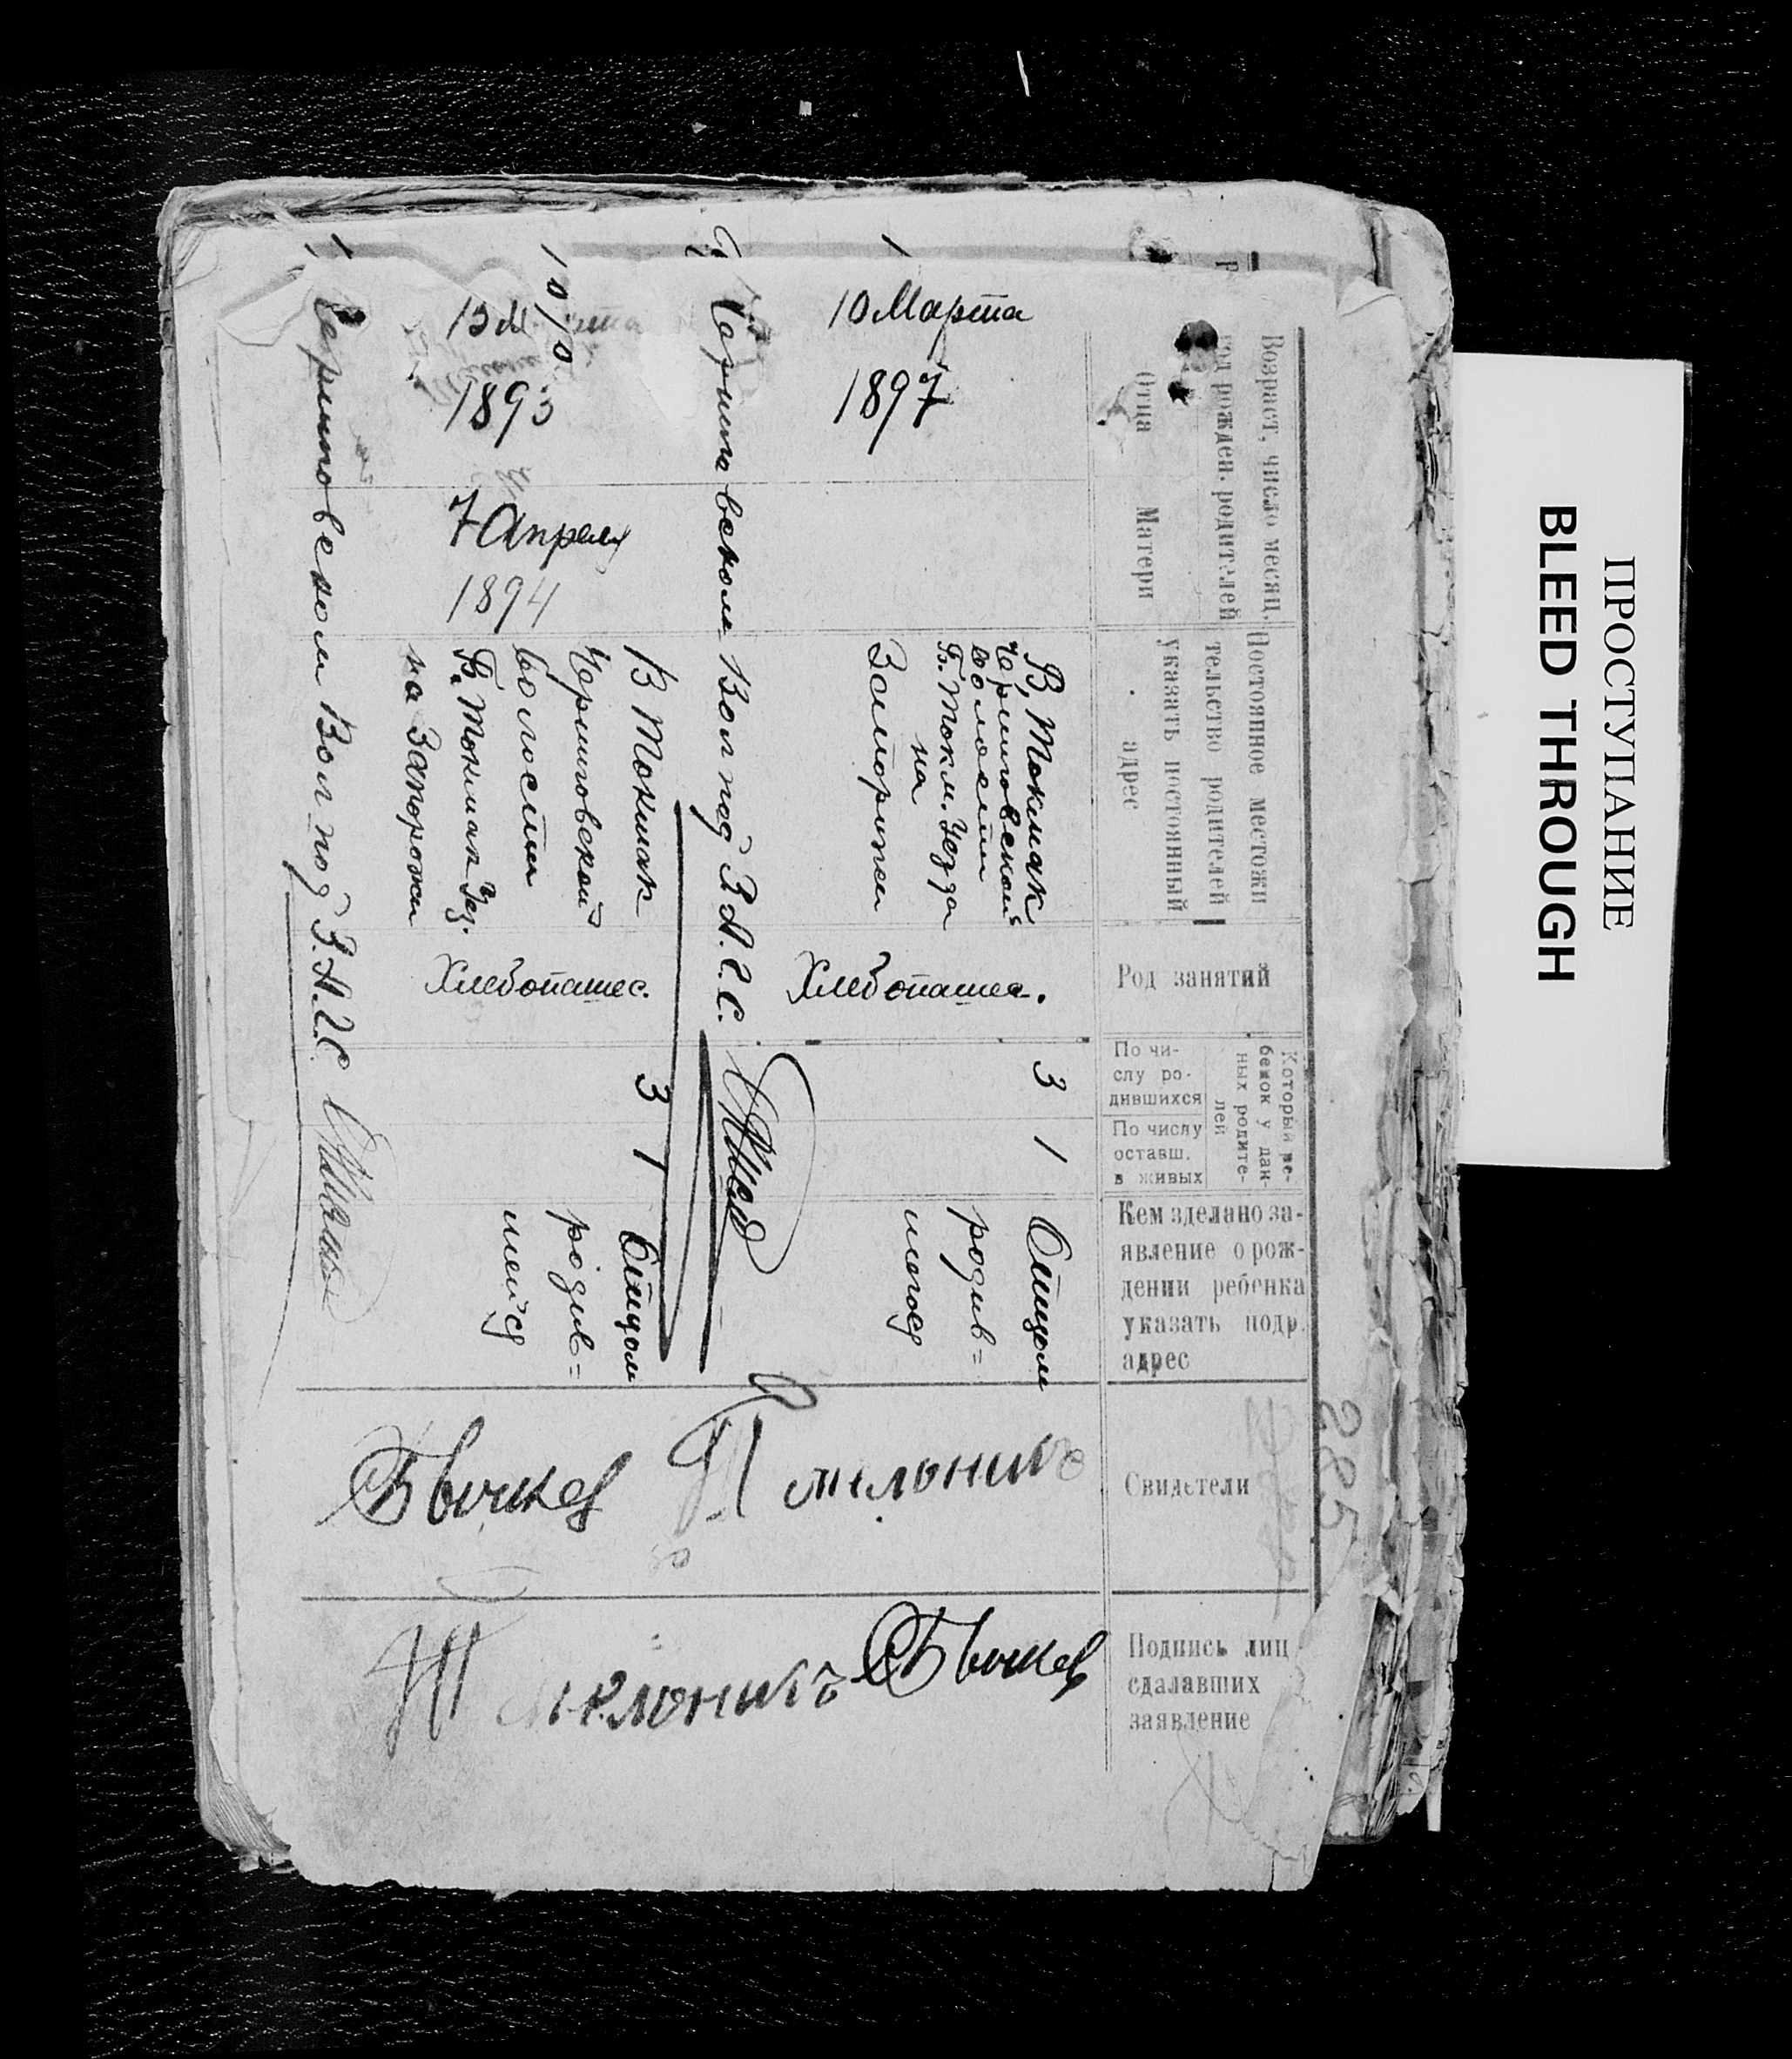 ПРОСТУПАНИЕ
BLEED THROUGH
285
Возраст, число месяц,
год рожден. родителей
Отца
Матери
Постоянное местожи
тельство родителей
указать постоянный
адрес
Род занятий
Который ре-
бенок у дан-
ных родите-
лей
По чи-
слу ро-
дившихся
По числу
оставш.
в живых
Кем зделано за-
явление о рож-
дении ребенка
указать подр.
адрес
Свидетели
Подпись лиц
сдалавших
заявление
10 Марта
1897
В, Токмак
Черниговской
волости
Б. Токм. Уезда
на
Запорожи
Хлебопашец.
3
1
Отцом
родив=
шегося
Черниговском Вол под З.А.Г.С.
1893
7 Апреля
1894
В Токмак
Черниговской
волости
Б. Токмак Уез.
на Запорожи
Хлебопашес.
3
1
Отцом
родив=
шейся
Черниговском Вол под З.А.Г.С